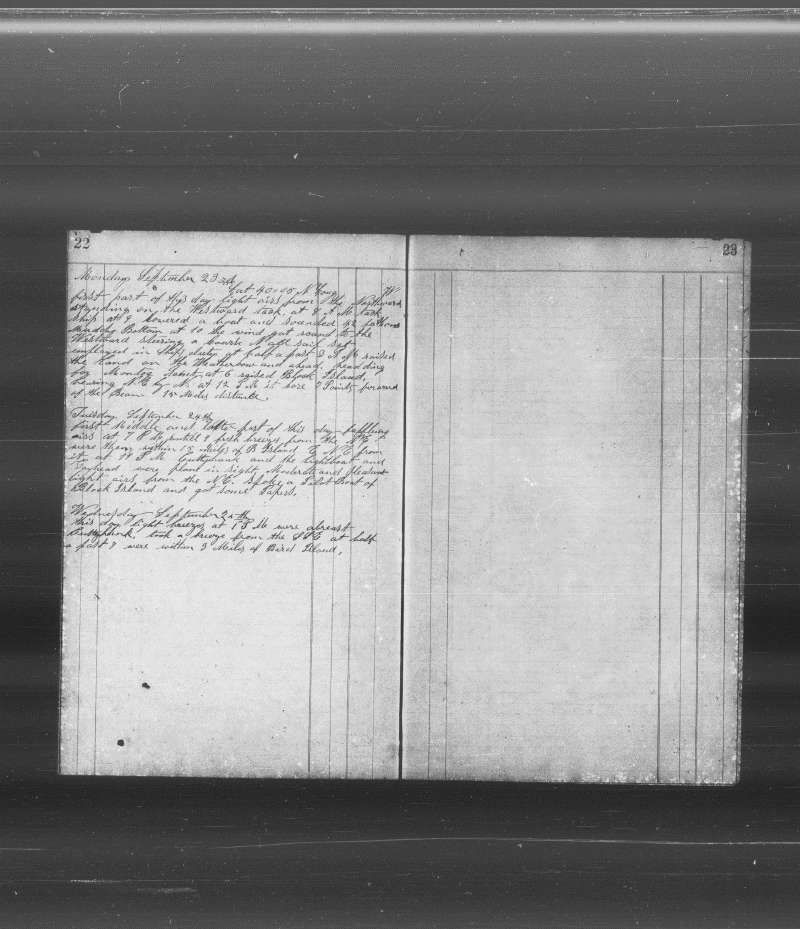 22
Monday September 23rd
Lat 40=45 N Long W
first part of this day light airs from the Northward
standing on the Westward tack, at 8 A M tack
ship at 9 lowered a boat and sounded 42 fathoms
Muddy Bottom at 10 the wind got round to the
Westward steering a course N all sail set
employed in ships duty at half a past 3 P M raised
the Land on the Weatherbow and ahead, headding
for Montog at 6 raised Block Island,
bearing N E by N. at 12 P M it bore 2 Points forward
of the Beam 15 Miles distance.
Tuesday September 24th
first Middle and latter part of this day baffling
airs at 7 P M until 9 fresh breeze from the
were then within 12 Miles of B Island E N E from
it at P M Cuttyhunk and the lightboat and
Gayhead were plain in sight, Moderate and pleasant
light airs from the N E. Spoke a Pilot Boat of
Block Island and got some Papers.
Wednesday September 25th
this day light breezes at 1 P M were abreast
Cuttyhunk, took a breeze from the at half
a past 7 were within 3 Miles of Bird Island,
23